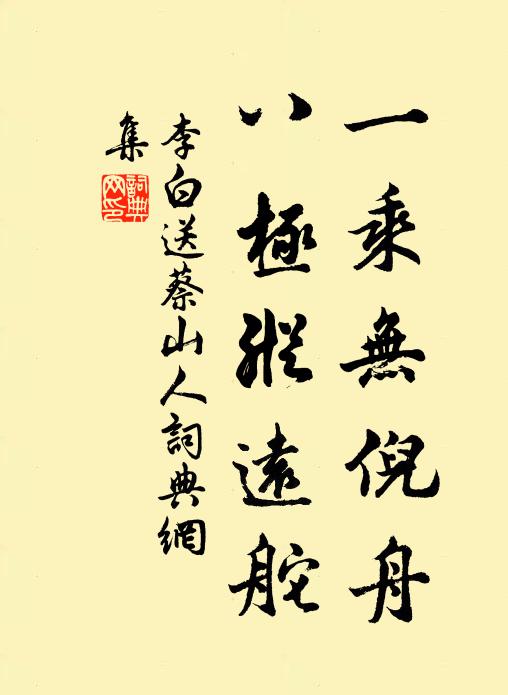 一乘無倪舟
八極縱遠舵
李白送蔡山人詞典網
集
詞典網印